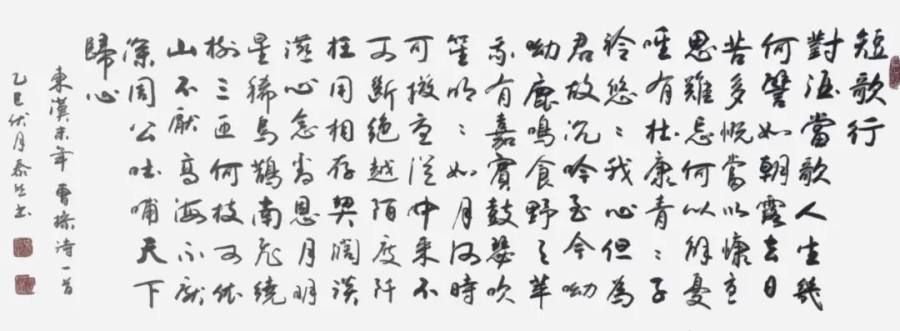 短歌行
對酒當歌人生幾
何譬如朝露去日
苦多慨當以慷憂
思難忘何以解憂
唯有杜康青〻子
衿悠〻我心但為
君故沉吟至今呦
呦鹿鳴食野之苹
我有嘉賓鼓瑟吹
笙明〻如月何時
可掇憂從中來不
可斷絕越陌度阡
枉用相存契闊談
讌心念舊恩月明
星稀烏鵲南飛繞
樹三匝何枝可依
山不厭高海不厭
深周公吐哺天下
歸心
東漢末年曹操詩一首
乙巳伏月書